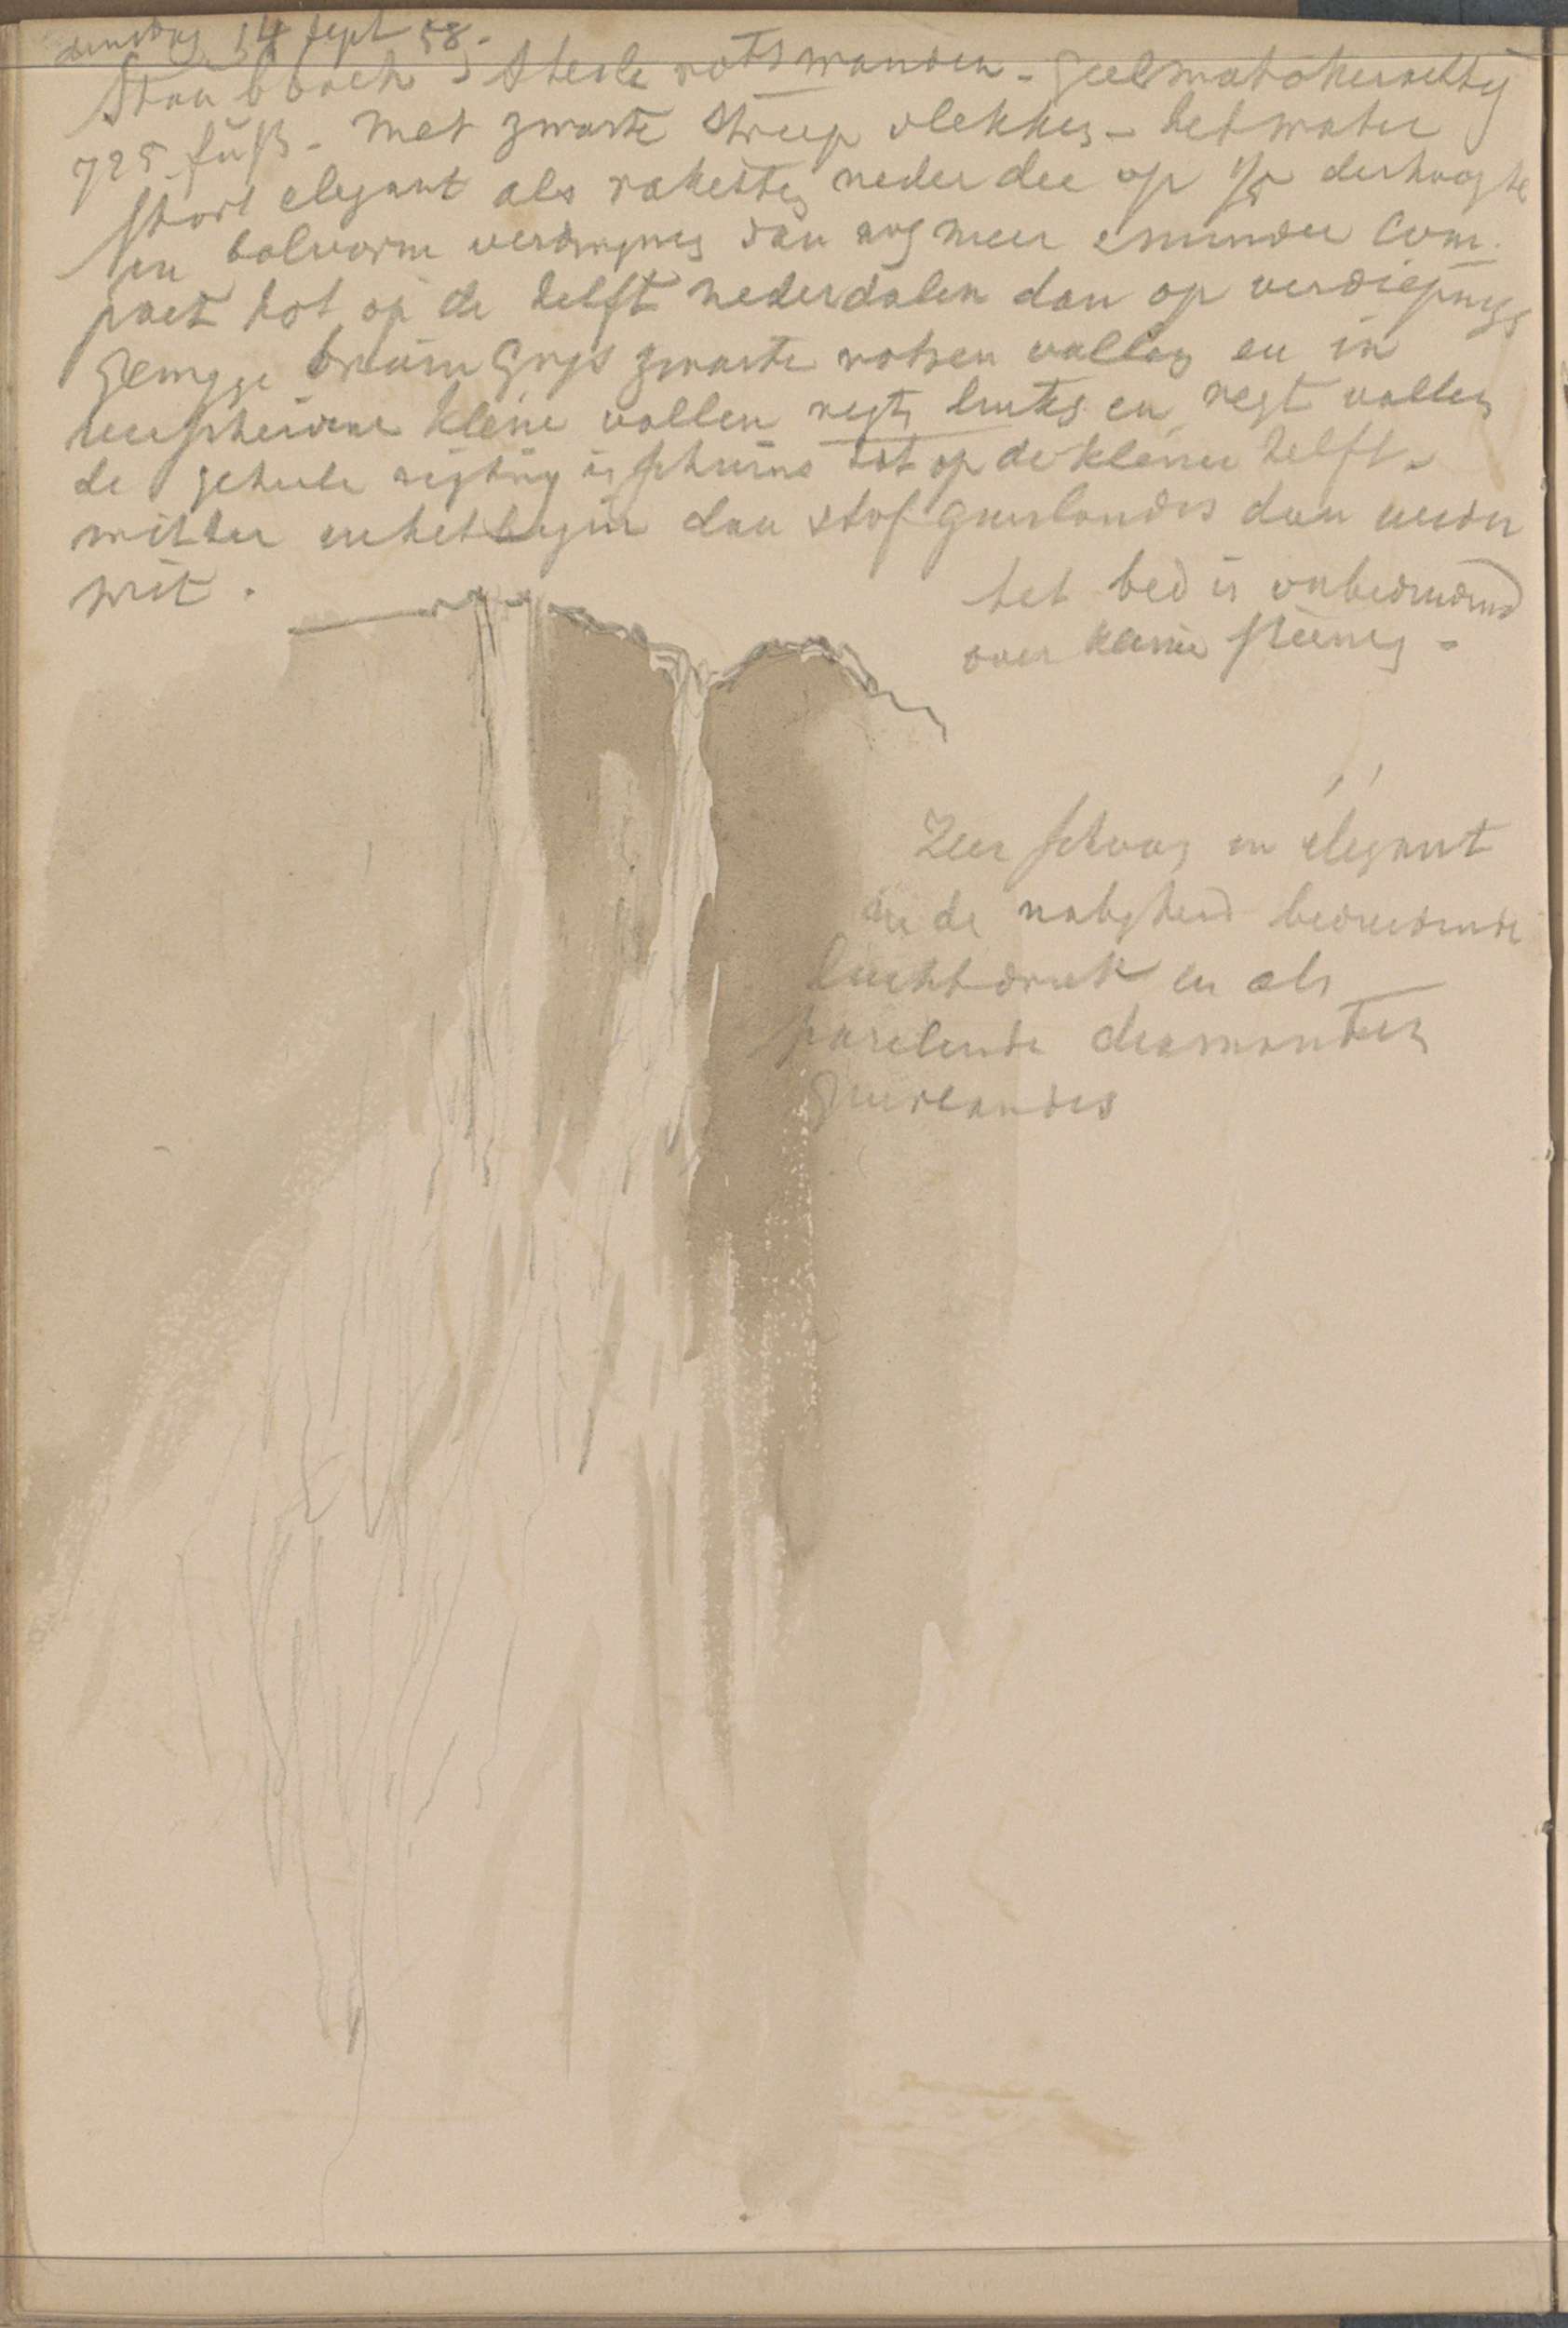 dinsdag 14 Sept 58.
Staubbach Steile rotswanden - geel mat okerachtig
725 fuß - met zwarte streep vlekken - het water
stort elegant als raketten neder die op 1/8 der hoogte
in bolvorm dan nog meer & minder com-
pact tot op de helft nederdalen dan op
bruin grys zwarte rotsen vallen en in
kleine vallen regts links en regt vallen
de geheele rigting is schuins tot op de kleine helft -
witter in het begin dan stof guirlandes dan weder
wit.
het bed is onbeduidend
over kleine steenen -
Zeer schoon en elegant
in de nabyheid
luchtdruk en als
parelende diamanten
guirlandes